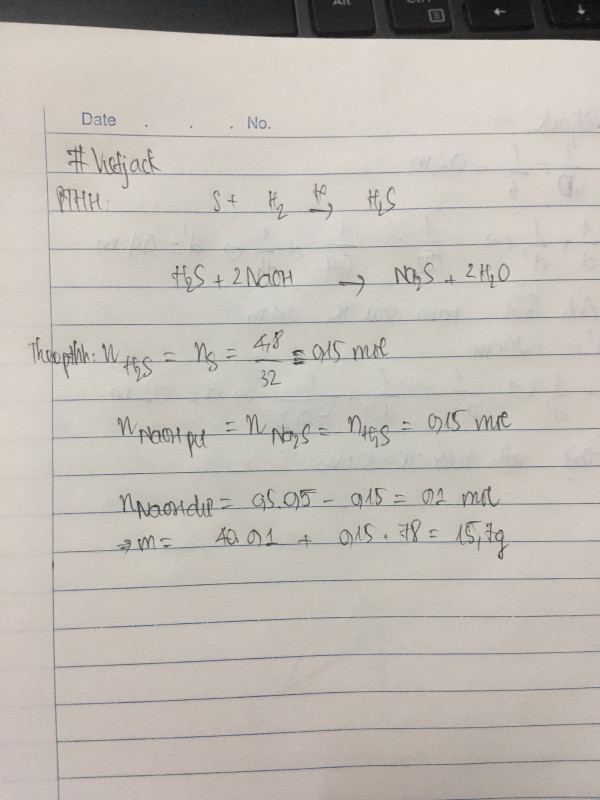 Alt
Ctrl
Date . . . No.
# Vietjack
PTHH: S + H₂ t° → H₂S
H₂S + 2NaOH → Na₂S + 2H₂O
Theo pthh: n H₂S = n S = 4,8/32 = 0,15 mol
n NaOH pứ = n Na₂S = n H₂S = 0,15 mol
n NaOH dư = 0,5.0,5 - 0,15 = 0,1 mol
⇒ m = 40.0,1 + 0,15.78 = 15,7g